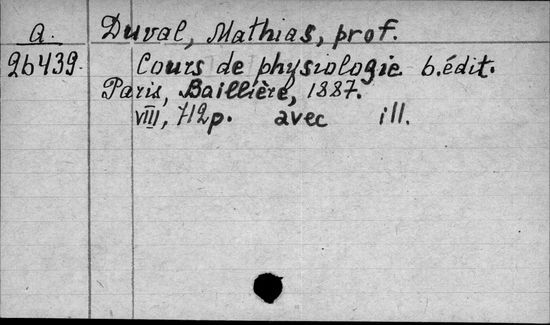 a. Duval, Mathias, prof.
26439. Cours de physiologie 6.édit.
Paris, Baillière, 1887.
VIII, 712p. avec ill.